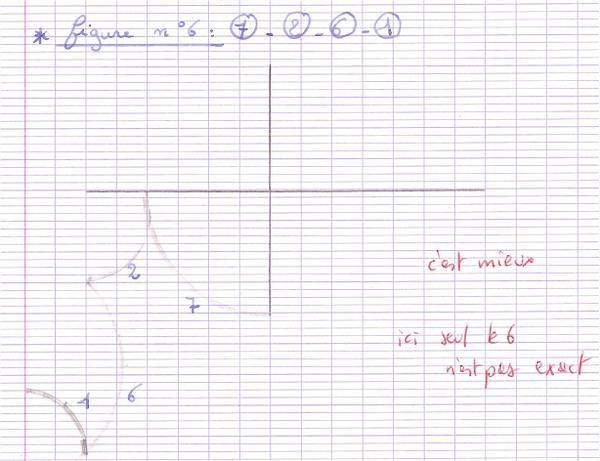 * figure n°6 : 7 - 2 - 6 - 1
c'est mieux
2
7
ici seul le 6
n'est pas exact
1
6